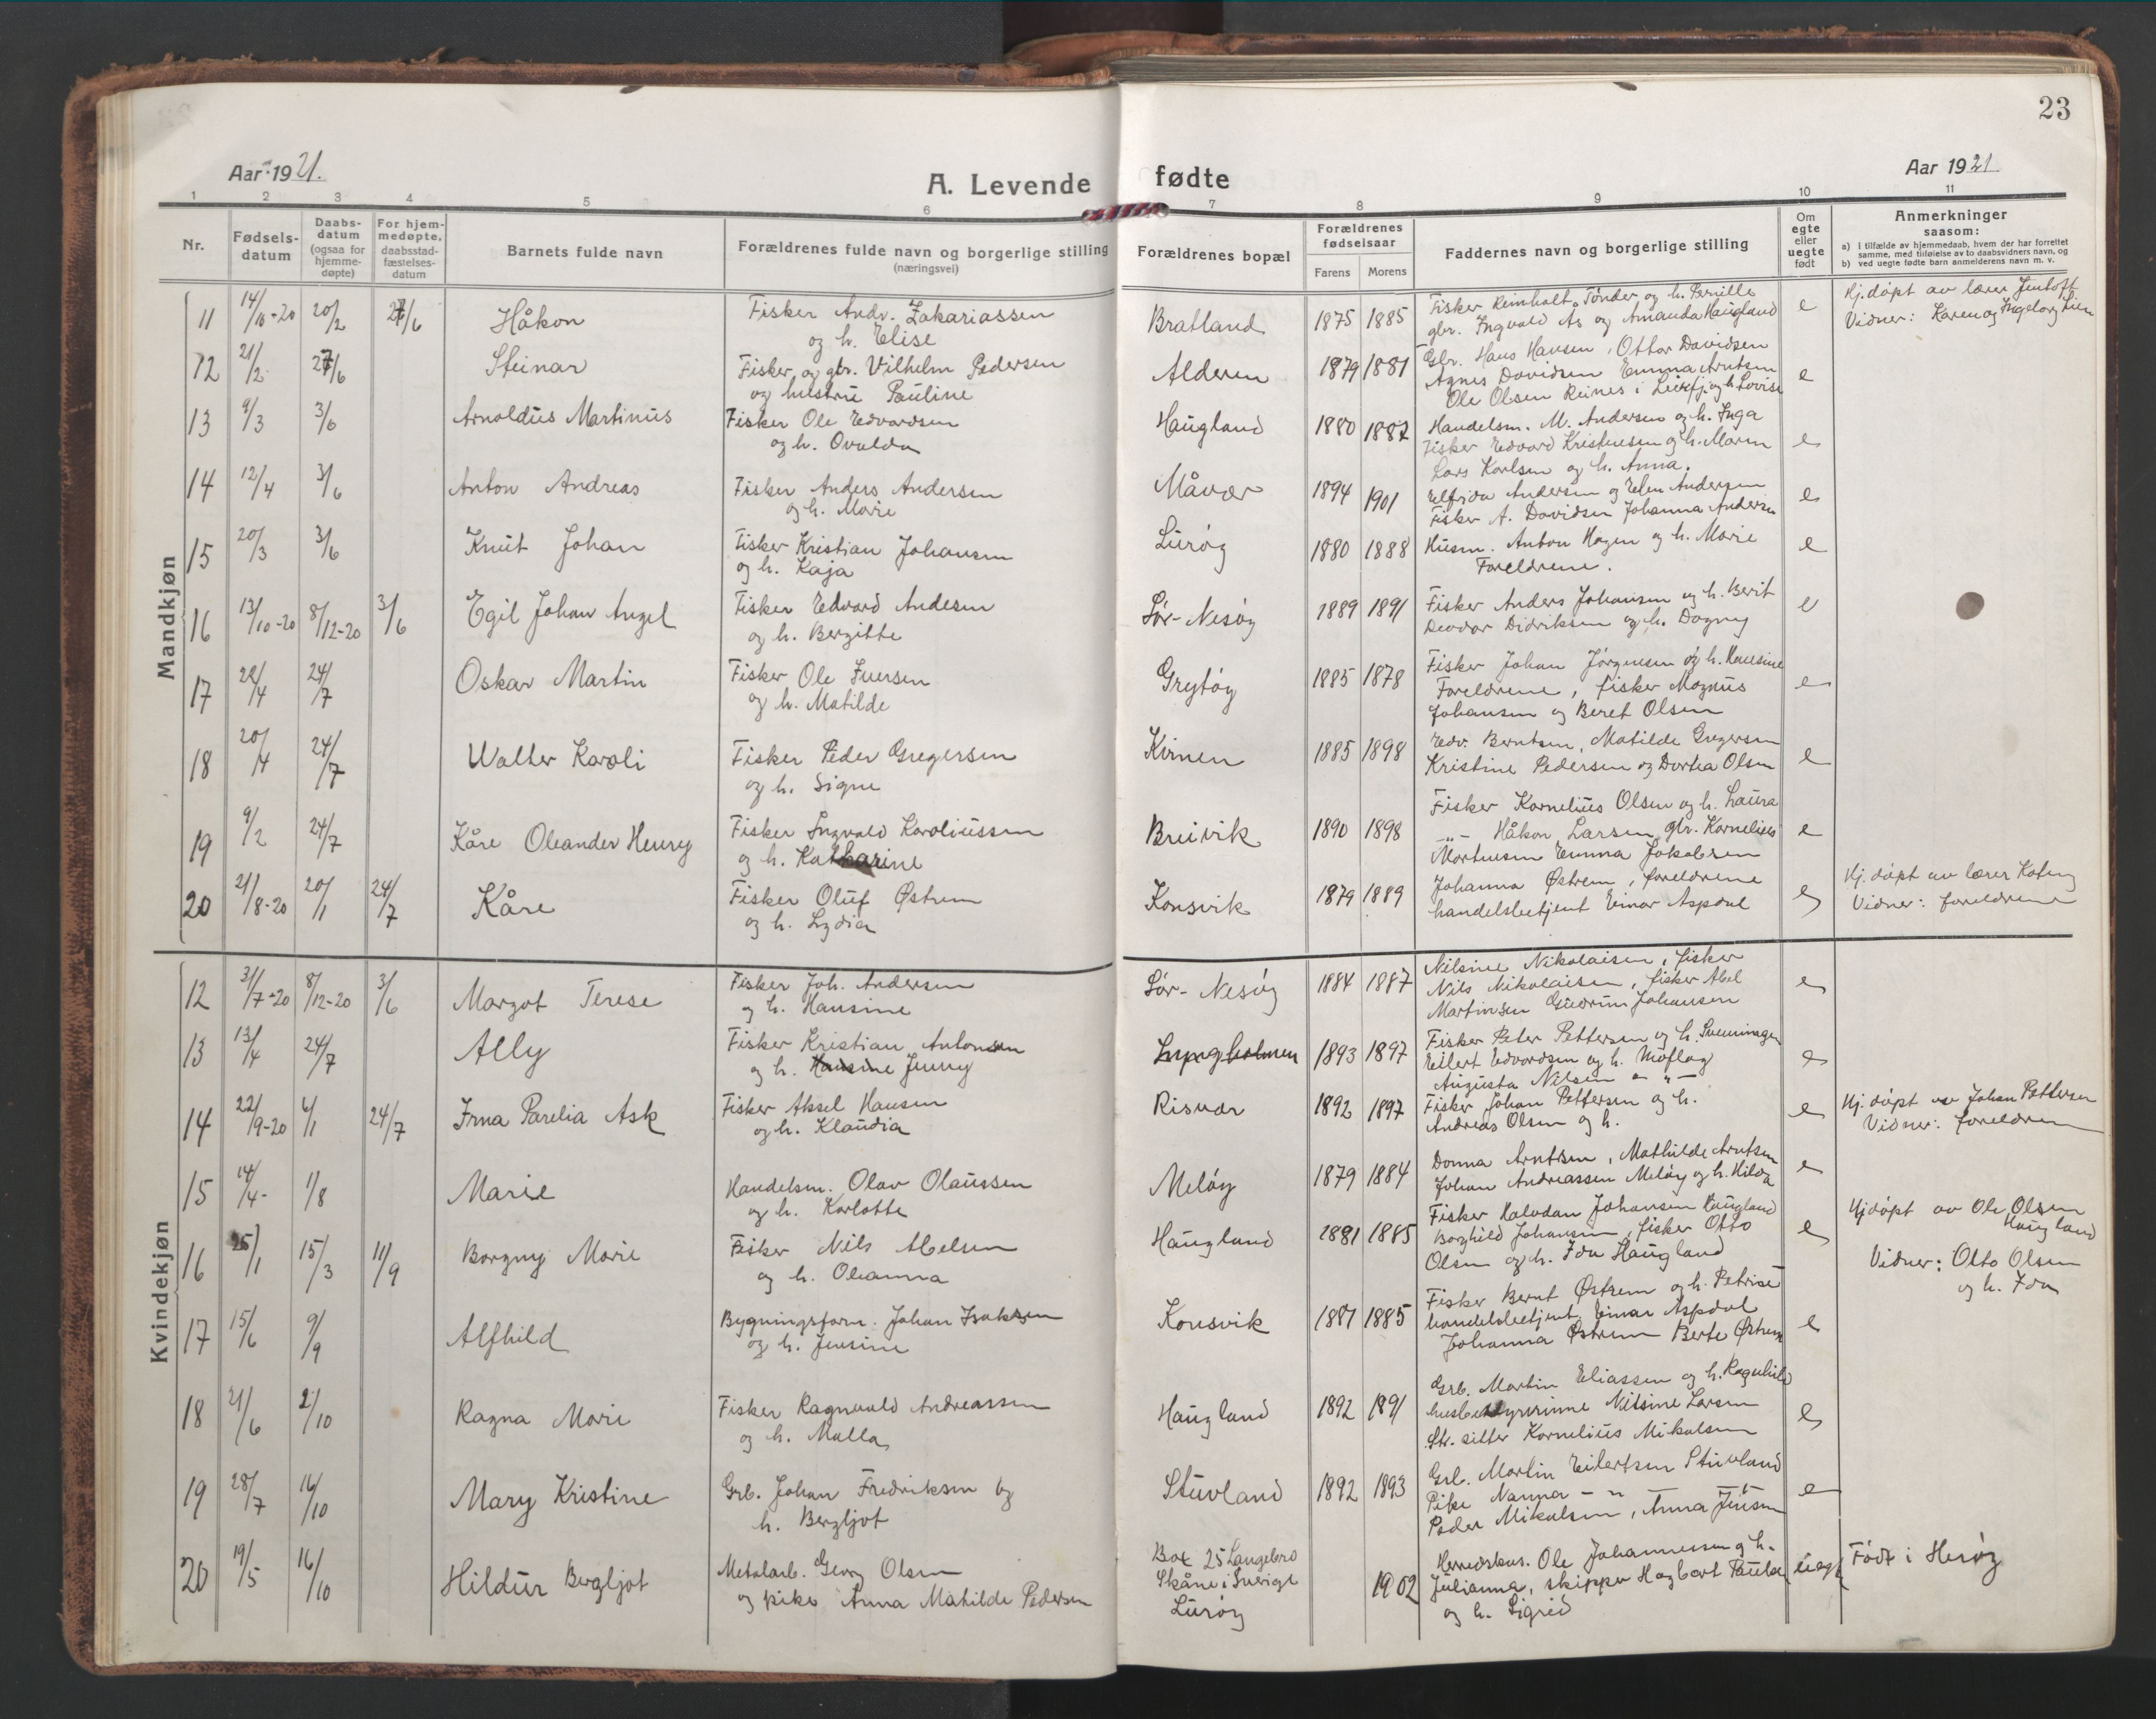 23
Aar 1921.
A. Levende fødte
Aar 1921
1 2 3 4 5 6 7 8 9 10 11
Nr.
Fødselsdatum
Daabsdatum (ogsaa for hjemmedøpte)
For hjemmedøpte, daabsstadfæstelsesdatum
Barnets fulde navn
Forældrenes fulde navn og borgerlige stilling (næringsvei)
Forældrenes bopæl
Forældrenes fødselsaar
Farens Morens
Faddernes navn og borgerlige stilling
Om egte eller uegte født
Anmerkninger saasom:
a) i tilfælde av hjemmedaab, hvem der har forrettet samme, med tilføielse av to daabsvidners navn, og
b) ved uegte fødte barn anmelderens navn m. v.
Mandkjøn
11 14/10-20 20/2 /6 Håkon Fisker Andr. Zakariassen Bratland 1875 1885 Fisker Reinholt Tønder og h. Pernille e Hj.døpt av lærer Jentoft
og h. Elise gbr. Ingvald As og Amanda Haugland Vidner: Karen og Ingeborg Lien
12 21/2 27/6 Steinar Fisker og gbr. Vilhelm Pedersen Alderen 1879 1881 Gbr. Hans Hansen, Ottar Davidsen e
og hustru Pauline Agnes Davidsen Emma Arntsen
Ole Olsen Reines i Leirfj. og h. Lovise
13 9/3 3/6 Arnoldus Martinus Fisker Ole Edvardsen Haugland 1880 1887 Handelsm. M. Andersen og h. Inga e
og h. Ovalda Fisker Edvard Kristensen og h. Maren
Lars Karlsen og h. Anna.
14 12/4 3/6 Anton Andreas Fisker Anders Andersen Måvær 1894 1901 Elfrida Andersen og Elen Andersen e
og h. Marie Fisker A. Davidsen Johanna Andersen
15 20/3 3/6 Knut Johan Fisker Kristian Johansen Lurøy 1880 1888 Husm. Anton Hagen og h. Marie e
og h. Kaja Foreldrene.
16 13/10-20 8/12-20 3/6 Egil Johan Angel Fisker Edvard Andersen Sør-Nesøy 1889 1891 Fisker Anders Johansen og h. Berit e
og h. Bergitte Didriksen og h. Dagny
17 /4 24/7 Oskar Martin Fisker Ole Iversen Grytøy 1885 1878 Fisker Johan Jørgensen og h. Hansine e
og h. Matilde Foreldrene, fisker Magnus
Johansen og Beret Olsen
18 20/4 24/7 Walter Karoli Fisker Peder Gregersen Kvinen 1885 1898 Edv. Berntsen, Matilde Gregersen e
og h. Signe Kristine Pedersen og Dortea Olsen
19 9/2 24/7 Kåre Oleander Henry Fisker Ingvald Karoliussen Breivik 1890 1898 Fisker Kornelius Olsen og h. Laura e
og h. Katharine -"- Håkon Larsen, gbr. Kornelius
Mortensen Emma Jakobsen
20 21/8-20 20/1 24/7 Kåre Fisker Oluf Østrem Konsvik 1879 1889 Johanna Østrem, foreldrene e Hj. døpt av lærer
og h. Lydia handelsbetjent Einar Aspdal Vidner: foreldrene
Kvindekjøn
12 31/7-20 8/12-20 3/6 Margot Terese Fisker Joh. Andersen Sør-Nesøy 1884 1887 Nilsine Nikolaisen, fisker e
og h. Hansine Nils Nikolaisen, fisker Abel
Martinsen Gudrun Johansen
13 13/4 24/7 Ally Fisker Kristian Antonsen 1893 1897 Fisker Peter Pettersen og h. e
og h. Hansine Jenny Eilert Edvardsen og h.
Augusta Nilsen - " -
14 22/9-20 /1 24/7 Irna Parelia Ask Fisker Aksel Hansen Risvær 1892 1897 Fisker Johan Pettersen og h. e Hj. døpt av Johan Pettersen
og h. Klaudia Andreas Olsen og h. Vidner: foreldrene
15 14/4 - 1/8 Marie Handelsm. Olav Olaussen Meløy 1879 1884 Donna Arntsen, Mathilde Arntsen e
og h. Karlotte Johan Andreassen Meløy og h. Hilda
16 25/1 15/3 11/9 Borgny Marie Fisker Nils Abelsen Haugland 1881 1885 Fisker Halvdan Johansen Haugland e Hjdøpt av Ole Olsen
og h. Oleanna Borghild Johansen, fisker Otto Haugland
Olsen og h. Ida Haugland Vidner: Otto Olsen
og h. Ida
17 15/6 9/9 Alfhild Bygningsform. Johan Isaksen Konsvik 1881 1885 Fisker Bernt Østrem og h. Petrine e
og h. Jensine handelsbetjent Einar Aspdal
Johanna Østrem Berte Østrem
18 21/6 2/10 Ragna Marie Fisker Ragnvald Andreassen Haugland 1892 1891 Grb. Martin Eliassen og h. Ragnhild e
og h. Malla husbestyrerinne Nilsine Larsen
Str. sitter Kornelius Mikalsen
19 28/7 16/10 Mary Kristine Grb. Johan Fredriksen og Stuvland 1892 1893 Grb. Martin Eilertsen Stuvland e
h. Bergljot Pike Nanna - " - - " -
Peder Mikalsen, Anna Jensen
20 19/5 16/10 Hildur Bergljot Metalarb. Georg Olsen Box 25 Langebro 1902 Herredskas. Ole Johannesen og h. uegt Født i Herøy
og pike Anna Mathilde Pedersen Skåne i Sverige Julianna, skipper Hagbart Paulsen
Lurøy og h. Sigrid